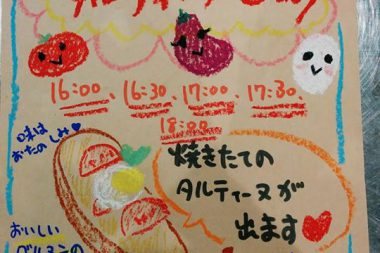 16:00、16:30、17:00、17:30、
18:00
味は
おたのしみ♥
焼きたての
タルティーヌが
出ます♥
おいしい